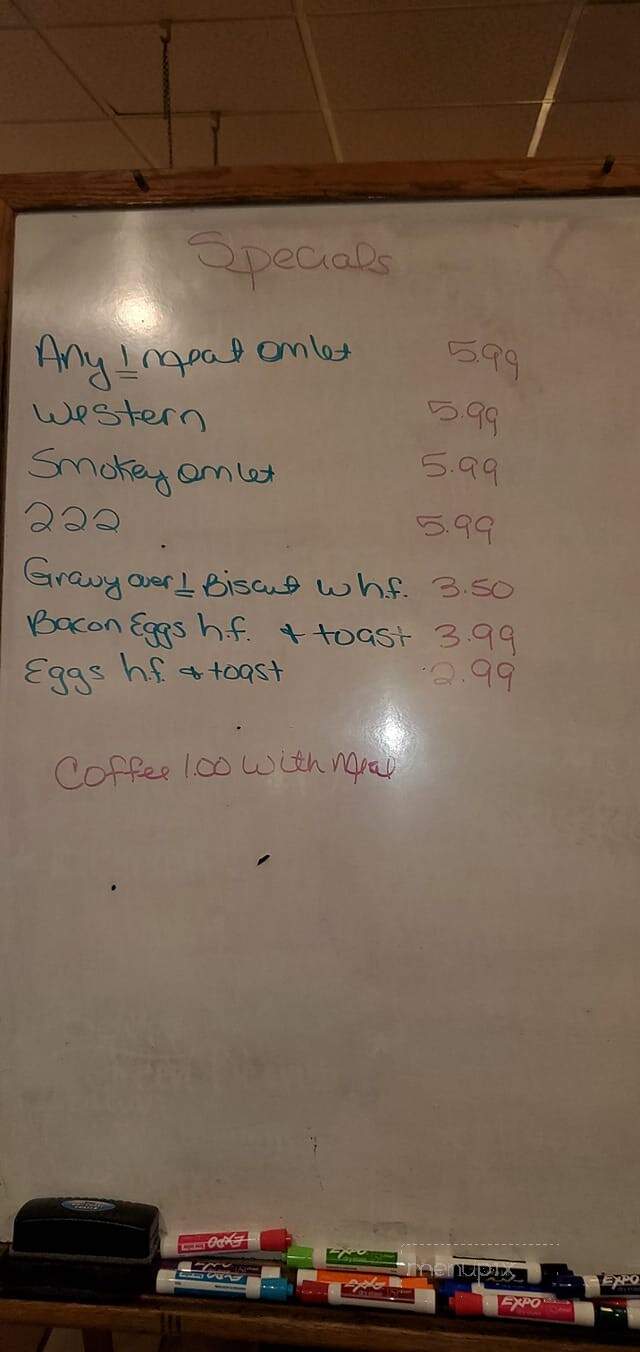 Specials
Any 1 meat omlet 5.99
Western 5.99
Smokey omlet 5.99
222 5.99
Gravy over 1 Biscut w h.f. 3.50
Bacon Eggs h.f. & toast 3.99
Eggs h.f. & toast 2.99
Coffee 1.00 with meal
EXPO
EXPO
EXPO
EXPO
EXPO
EXPO
menupix